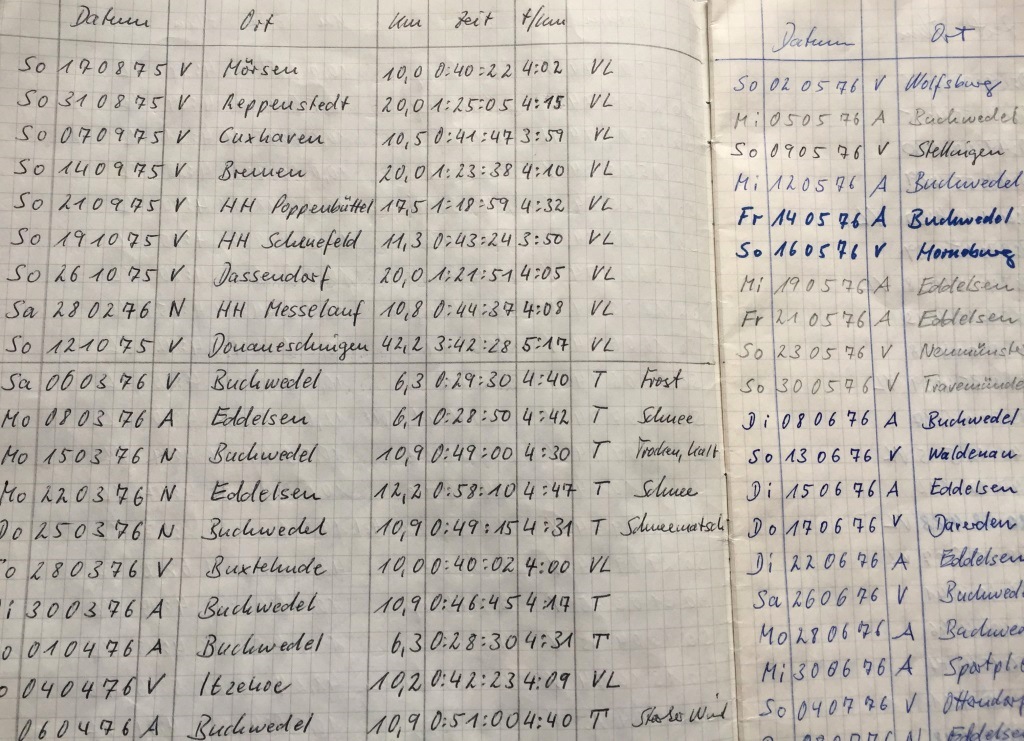 Datum Ort km Zeit t/km
So 170875 V Mörsen 10,0 0:40:22 4:02 VL
So 310875 V Reppenstedt 20,0 1:25:05 4:15 VL
So 070975 V Cuxhaven 10,5 0:41:47 3:59 VL
So 140975 V Bremen 20,0 1:23:38 4:10 VL
So 210975 V HH Poppenbüttel 17,5 1:18:59 4:32 VL
So 191075 V HH Schenefeld 11,3 0:43:24 3:50 VL
So 261075 V Dassendorf 20,0 1:21:51 4:05 VL
Sa 280276 N HH Messelauf 10,8 0:44:37 4:08 VL
So 121075 V Donaueschingen 42,2 3:42:28 5:17 VL
Sa 060376 V Buchwedel 6,3 0:29:30 4:40 T Frost
Mo 080376 A Eddelsen 6,1 0:28:50 4:42 T Schnee
Mo 150376 N Buchwedel 10,9 0:49:00 4:30 T Trocken, kalt
Mo 220376 N Eddelsen 12,2 0:58:10 4:47 T Schnee
Do 250376 N Buchwedel 10,9 0:49:15 4:31 T Schneematsch
o 280376 V Buxtehude 10,0 0:40:02 4:00 VL
i 300376 A Buchwedel 10,9 0:46:45 4:17 T
o 010476 A Buchwedel 6,3 0:28:30 4:31 T
o 040476 V Itzehoe 10,2 0:42:23 4:09 VL
060476 A Buchwedel 10,9 0:51:00 4:40 T Starker Wind
Datum Ort
So 020576 V Wolfsburg
Mi 050576 A Buchwedel
So 090576 V Stellingen
Mi 120576 A Buchwedel
Fr 140576 A Buchwedel
So 160576 V Horneburg
Mi 190576 A Eddelsen
Fr 210576 A Eddelsen
So 230576 V Neumünste
So 300576 V Travemünde
Di 080676 A Buchwedel
So 130676 V Waldenau
Di 150676 A Eddelsen
Do 170676 V
Di 220676 A Eddelsen
Sa 260676 V Buchwed
Mo 280676 A Buchwe
Mi 300676 A Sportpl
So 040776 V Ottendorf
Eddelsen